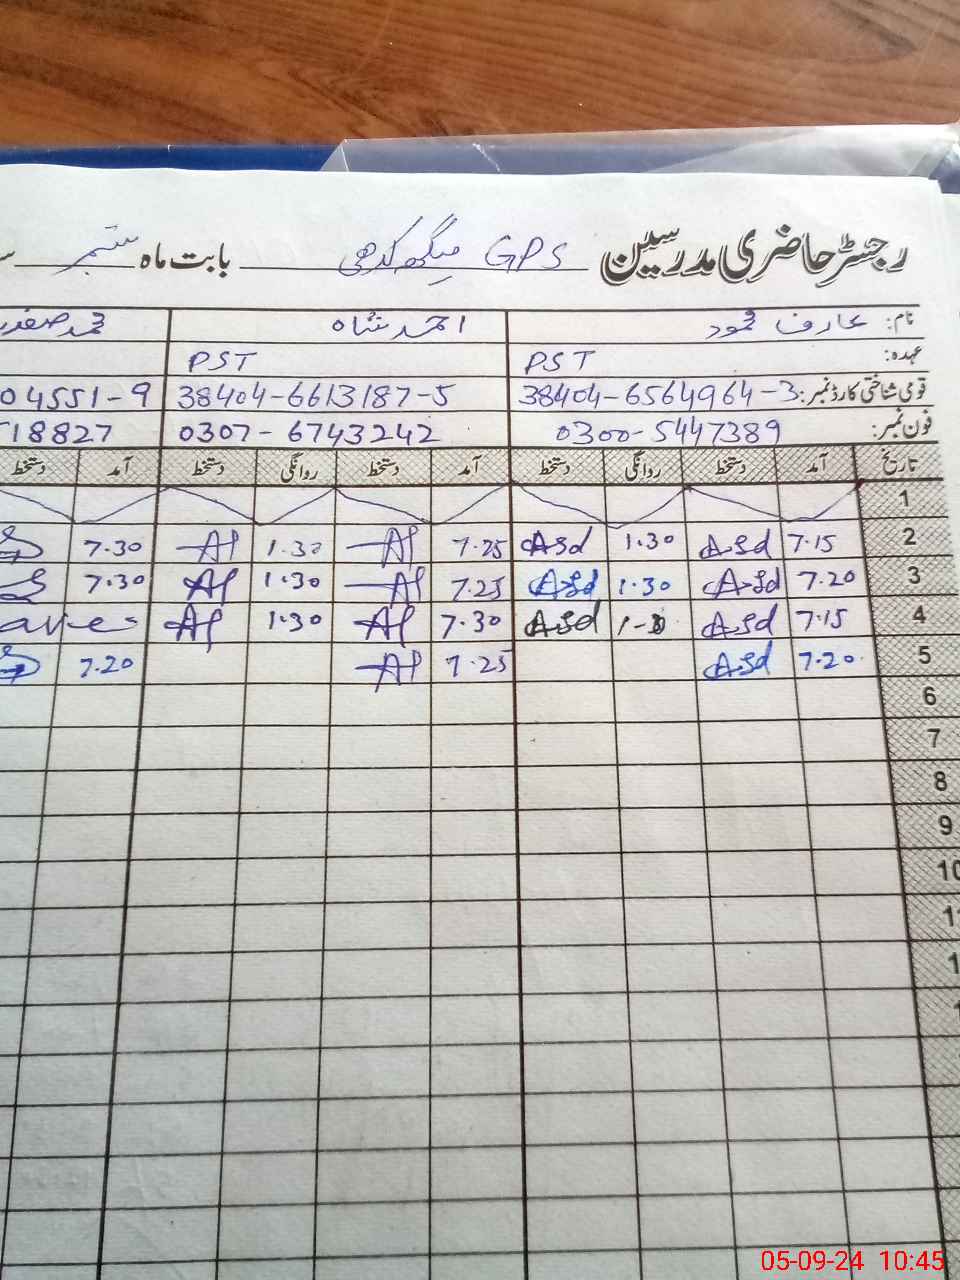 رجسٹر حاضری مدرسین GPS میگھ کدھی بابت ماہ ستمبر
نام: عارف محمود احمد شاہ محمد صفدر
عہدہ: PST PST
قومی شناختی کارڈ نمبر: 38404-6564964-3 38404-6613187-5 04551-9
فون نمبر: 0300-5447389 0307-6743242 18827
تاریخ آمد دستخط روانگی دستخط آمد دستخط روانگی دستخط آمد دستخط
1
2 7.15 Asd 1.30 Asd 7.25 Af 1.30 Af 7.30
3 7.20 Asd 1.30 Asd 7.25 Af 1.30 Af 7.30
4 7.15 Asd Asd 7.30 Af 1.30 Af
5 7.20 Asd 7.25 Af 7.20
6
7
8
9
10
05-09-24 10:45